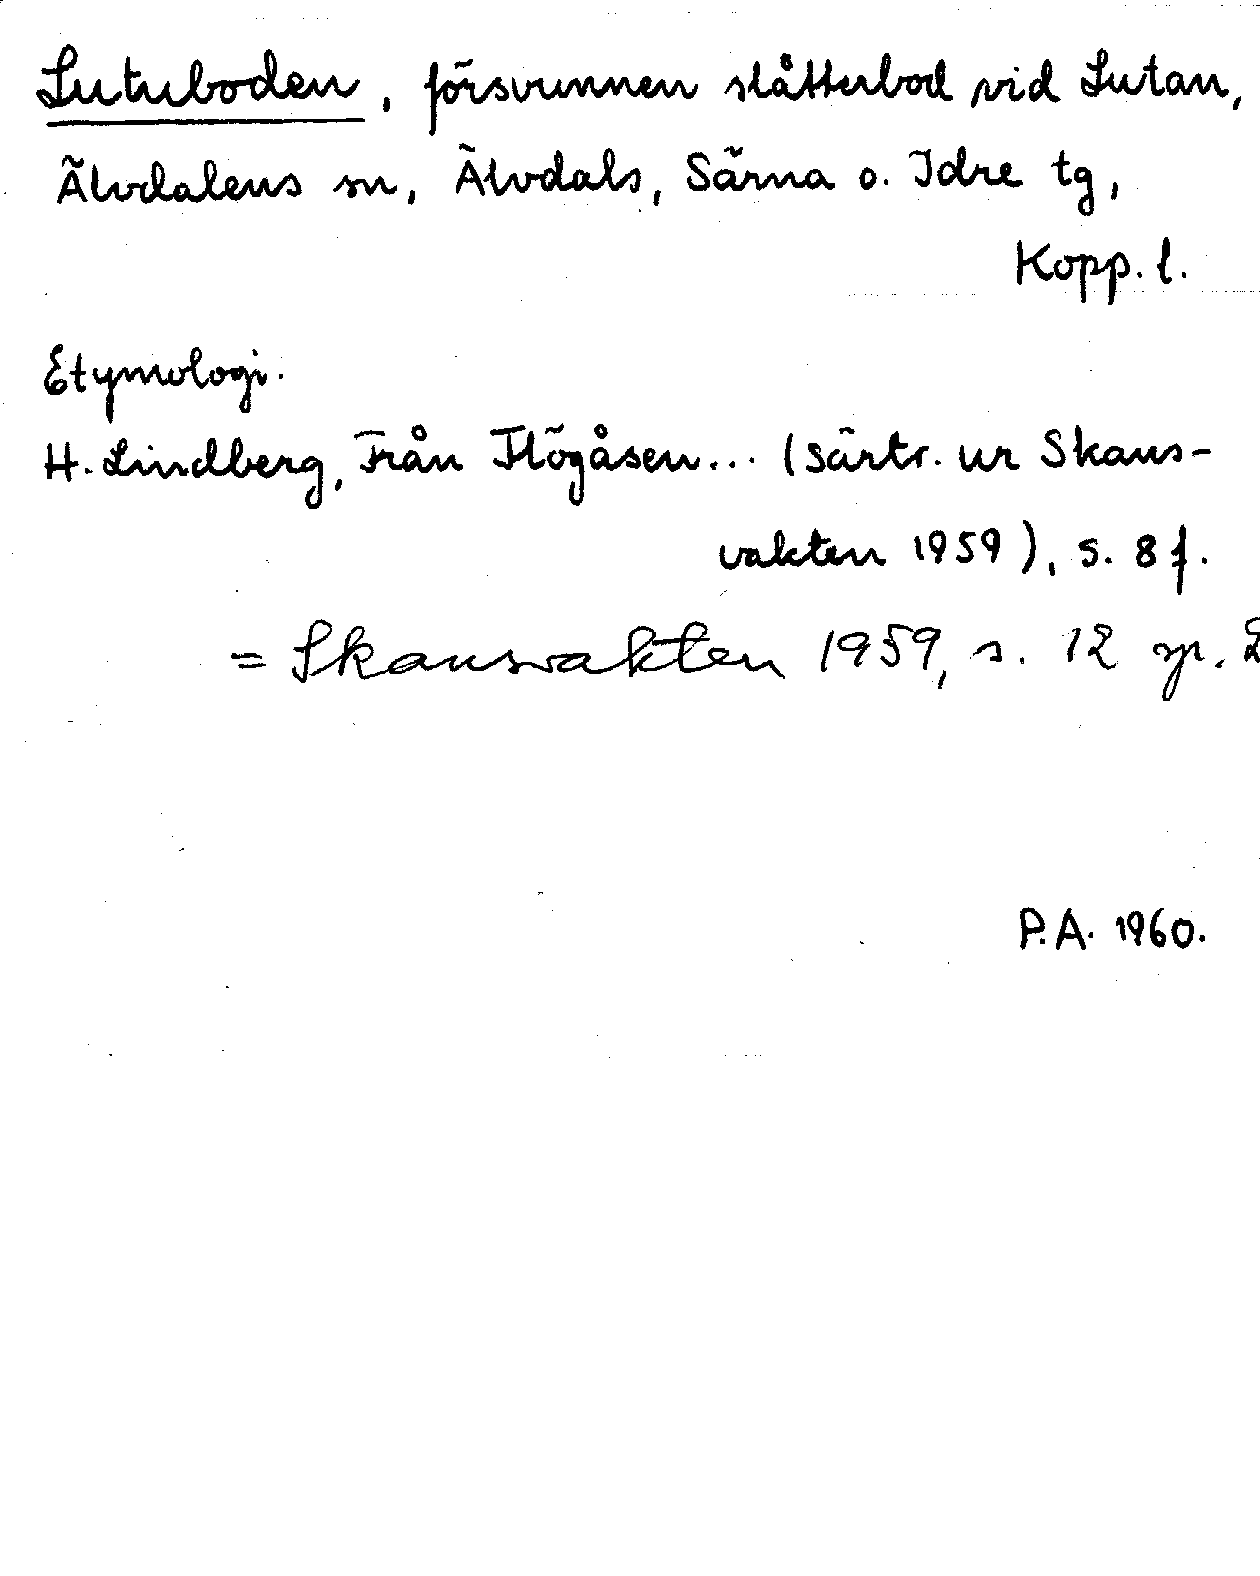 Lutuboden, försvunnen slåtterbod vid Lutan,
Älvdalens sn, Älvdals, Särna o. Idre tg,
Kopp. l.
Etymologi.
H. Lindberg, Från Flögåsen... (särtr. ur Skans-
vakten 1959), s. 8 f.
= Skansvakten 1959, s. 12 sp. 2
P.A. 1960.